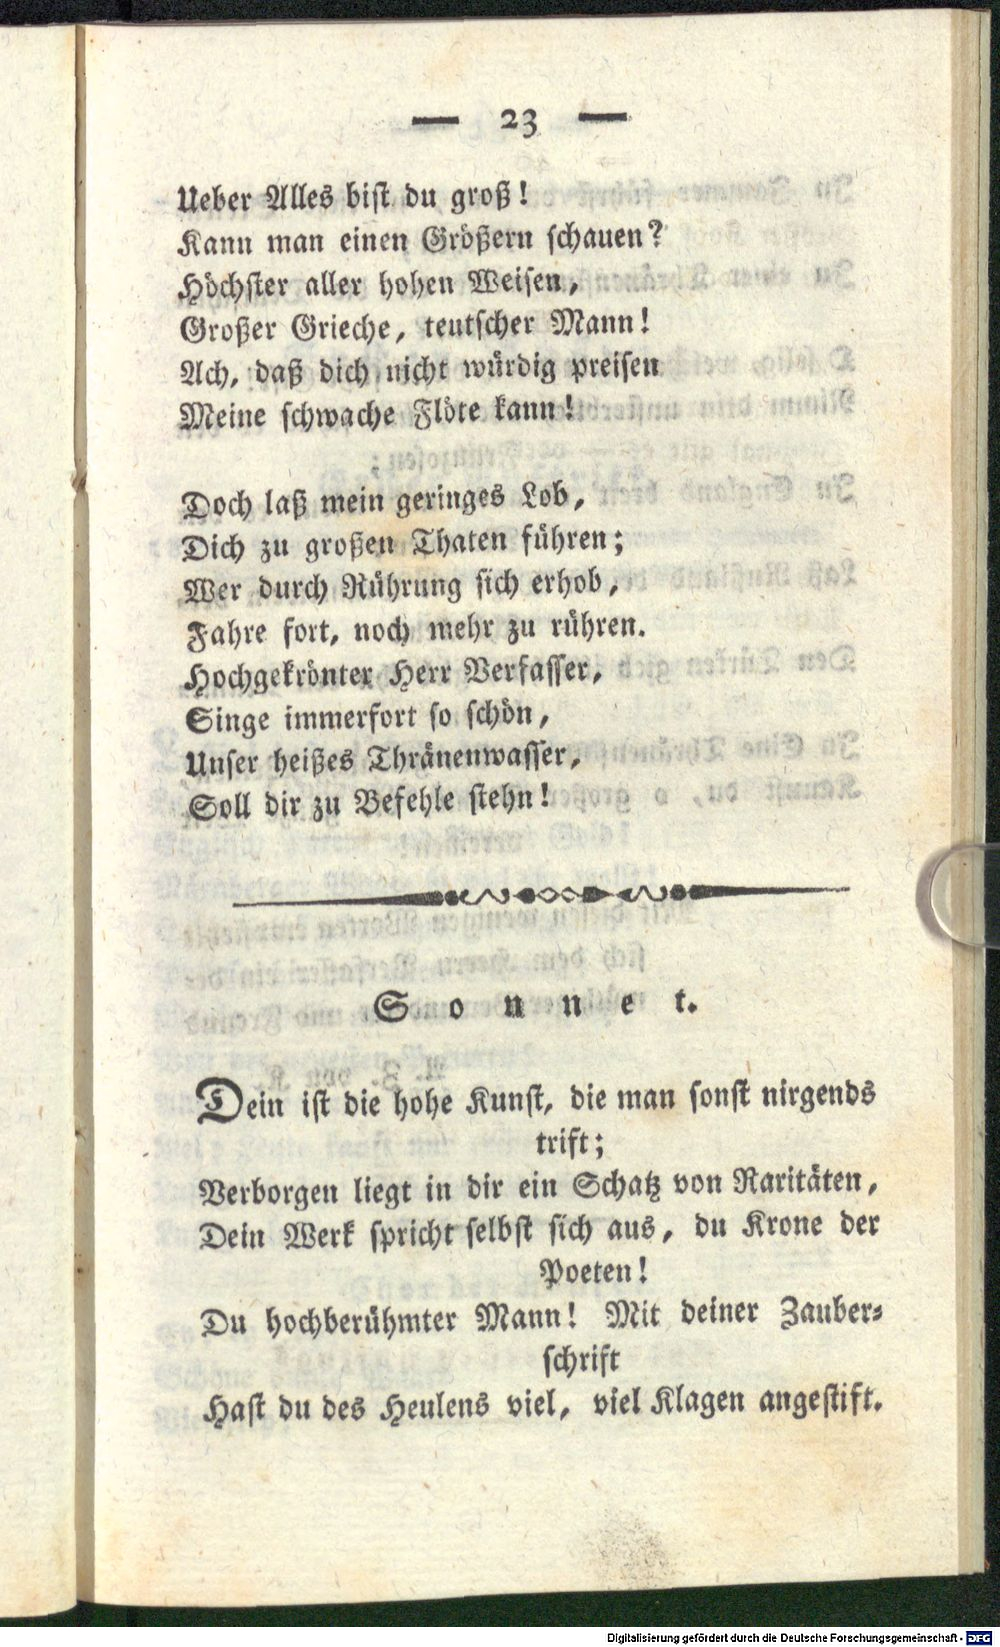 — 23 —
Ueber Alles bist du groß!
Kann man einen Größern schauen?
Höchster aller hohen Weisen,
Großer Grieche, teutscher Mann!
Ach, daß dich nicht würdig preisen
Meine schwache Flöte kann!
Doch laß mein geringes Lob,
Dich zu großen Thaten führen;
Wer durch Rührung sich erhob,
Fahre fort, noch mehr zu rühren.
Hochgekrönter Herr Verfasser,
Singe immerfort so schön,
Unser heißes Thränenwasser,
Soll dir zu Befehle stehn!
Sonnet.
Dein ist die hohe Kunst, die man sonst nirgends
trift;
Verborgen liegt in dir ein Schatz von Raritäten,
Dein Werk spricht selbst sich aus, du Krone der
Poeten!
Du hochberühmter Mann! Mit deiner Zauber-
schrift
Hast du des Heulens viel, viel Klagen angestift.
Digitalisierung gefördert durch die Deutsche Forschungsgemeinschaft - DFG